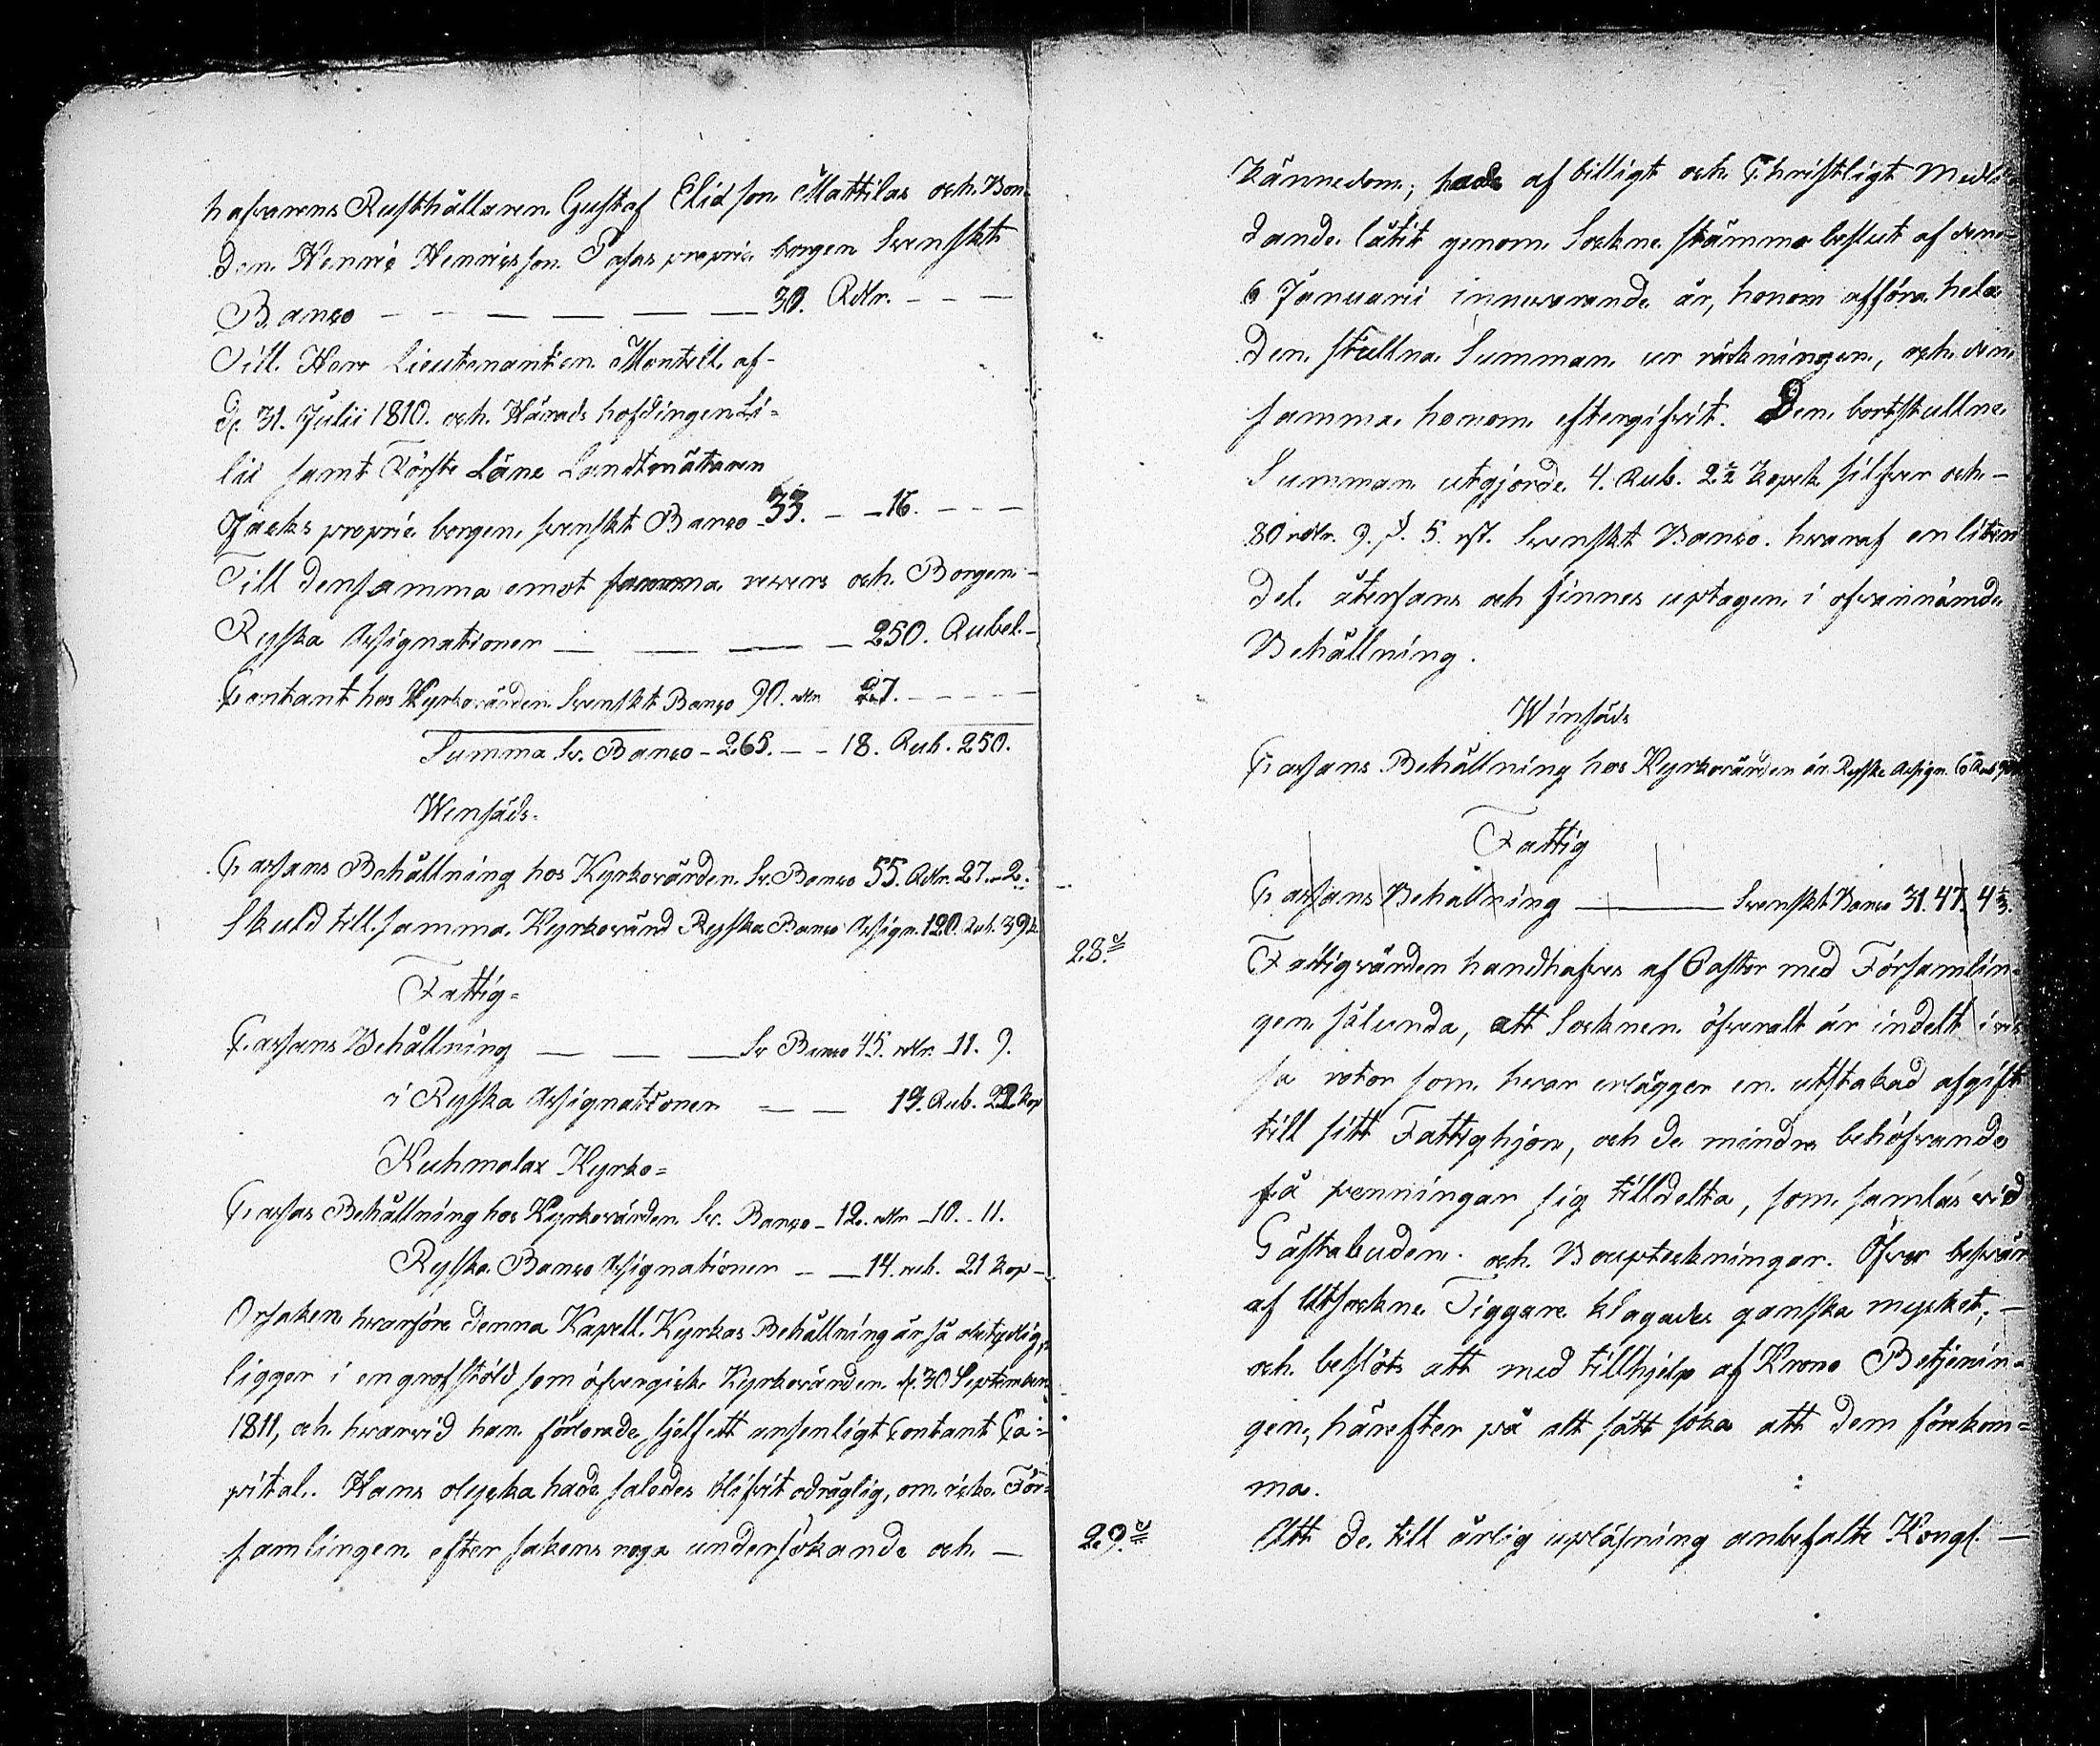 hafvarens Rusthållaren Gustaf Elid son Mattilas och Bon-
den Henric Henricsson Pasas proprie borgen Svenskt
Banco — — — — — — 30. Rdlr. - - -
Till Herr Lieutenanten Montell af-
d. 31. Julii 1810. och Härads höfdingen Li-
lii samt Förste Läne Landtmätaren
Jacks proprie borgen, svenskt Banco 33. - - 16. - - -
Till densamma emot samma revers och Borgen-
Ryska Assignationer — — — — 250. Rubel.-
Contant hos Kyrkovärden Svenskt Banco 90. rdlr 27. - - - -
Summa Sv. Banco - 265. - - 18. Rub. 250.
Winsäds-
Cassans Behållning hos Kyrkovärden Sv. Banco 55. Rdlr. 27. - 2.
Skuld till samma Kyrkovärd Ryska Banco Assign. 120. Rub. 39 k.
Fattig-
Cassans Behållning — — — Sv Banco 45. rdlr. 11. 9.
i Ryska Assignationer — — 19. Rub. 22 kop
Kuhmalax Kyrko-
Cassas Behållning hos Kyrkovärden Sv. Banco - 12. rdlr - 10. - 11.
Ryska Banco Assignationer - — 14. rub. 21 kop -
Orsaken hvarföre denna Kapell Kyrkas Behållning är så obetydlig,
ligger i en grof stöld som öfvergick Kyrkovärden d. 30 September
1811, och hvarvid han förlorade sjelf ett ansenligt Contant Ca-
pital. Hans olycka hade således blifvit odräglig, om icke För-
samlingen efter sakens noga undersökande och —
Kännedom; hade af billigt och Christligt Medli-
dande låtit genom Sockne stämmo beslut af den
6 Januarii innevarande år, honom afföra hela
den stullna Summan ur räckningen, och den
samma honom eftergifvit. Den bortstullne
Summan utgjorde 4. Rub. 2½ Kopek silfver och -
80 rdlr. 9. β. 5. rst. Svenskt Banco. hvaraf en liten
del återfans och finnes uptagen i ofvannämde
Behållning.
Winsäds
Cassans Behållning hos Kyrkovärden är Ryska Assign. 6 Rub
Fattig
Cassans Behållning ——— Svenskt Banco 31. 47. 4⅓.
28.§
Fattigvården handhafves af Pastor med Församlin-
gen sålunda, att Socknen öfveralt är indelt i vis
sa rotor som hvar erlägger en utstakad afgift
till sitt Fattighjon, och de mindre behöfvande
få penningar sig tilldelta, som samlas vid
Gästabuden och Bouptekningar. Öfver besvär
af Utsockne Tiggare klagades ganska mycket, -
och beslöts att med tillhjelp af Krono Betjenin-
gen, härefter på alt sätt söka att dem förekom-
ma.
29.§
Att de till årlig upläsning anbefalte Kongl. —